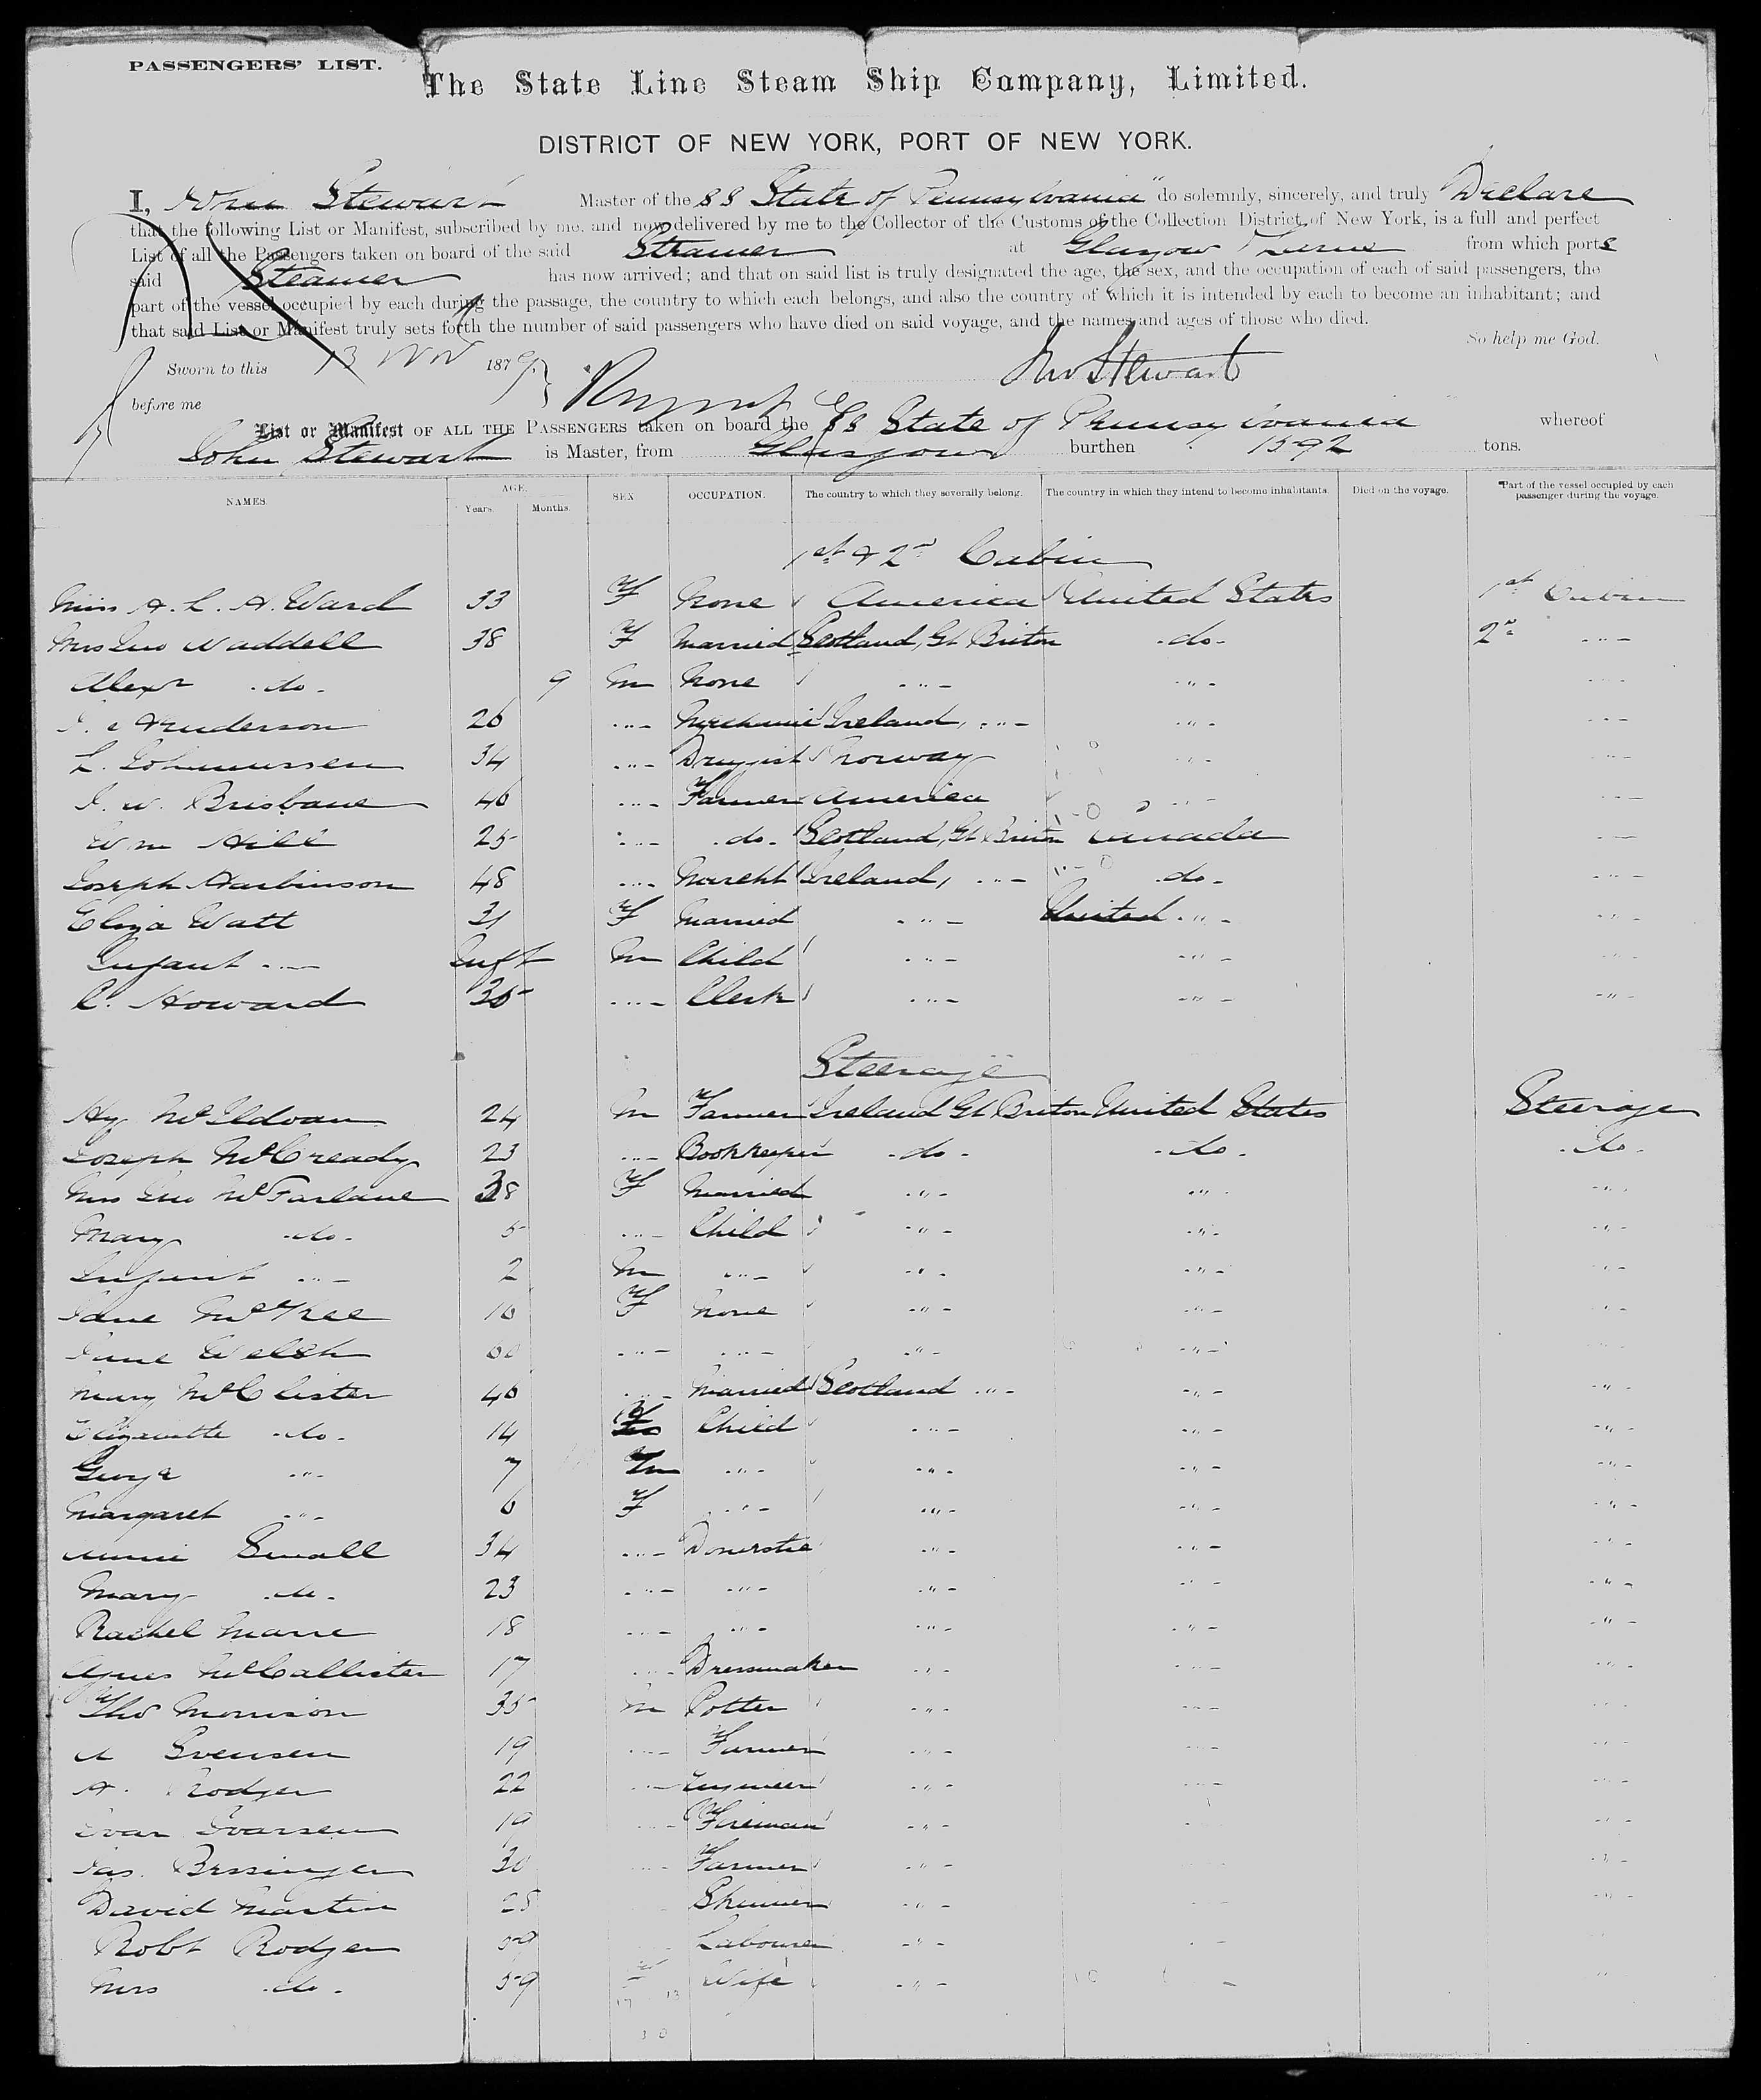 PASSENGERS' LIST.
The State Line Steam Ship Company, Limited.
DISTRICT OF NEW YORK, PORT OF NEW YORK.
I, John Stewart Master of the SS State of Pennsylvania" do solemnly, sincerely, and truly Declare
that the following List or Manifest, subscribed by me, and now delivered by me to the Collector of the Customs of the Collection District of New York, is a full and perfect
List of all the Passengers taken on board of the said Steamer at Glasgow & Larne from which ports
said Steamer has now arrived; and that on said list is truly designated the age, the sex, and the occupation of each of said passengers, the
part of the vessel occupied by each during the passage, the country to which each belongs, and also the country of which it is intended by each to become an inhabitant; and
that said List or Manifest truly sets forth the number of said passengers who have died on said voyage, and the names and ages of those who died.
So help me God.
Sworn to this 13 Nov 1879
Jno Stewart
before me
List or Manifest OF ALL THE PASSENGERS taken on board the SS State of Pennsylvania whereof
John Stewart is Master, from Glasgow burthen 1592 tons.
NAMES. AGE. Years. Months. SEX OCCUPATION. The country to which they severally belong. The country in which they intend to become inhabitants. Died on the voyage. Part of the vessel occupied by each passenger during the voyage.
1st & 2nd Cabin
Miss A. L. A. Ward 33 F None America United States 1st Cabin
Mrs Geo Waddell 38 F Married Scotland, Gt Briton -do- 2nd -"-
Alexr -do- 9 M None -"- -"- -"-
Henderson 26 -"- Mechanic Ireland, -"- -"- -"-
L. 34 -"- Druggist Norway -"- -"-
J. W. Brisbane 46 -"- Farmer America -"- -"-
Wm Hill 25 -"- -do- Scotland, Gt Briton Canada -"-
Joseph Harbinson 48 -"- Marcht Ireland, -"- -do- -"-
Eliza Watt 31 F Married -"- United -"- -"-
Infant -"- Inft M Child -"- -"- -"-
C. Howard 35 -"- Clerk -"- -"- -"-
Steerage
Hy McIldoan 24 M Farmer Ireland Gt Briton United States Steerage
Joseph McCready 23 -"- Bookkeeper -do- -do- -do-
Mrs Geo McFarlane 38 F Married -"- -"- -"-
Mary -do- 5 -"- Child -"- -"- -"-
Infant -"- 2 M -"- -"- -"- -"-
Jane McKee 10 F None -"- -"- -"-
Jane Welsh 60 -"- -"- -"- -"-
Mary McClister 40 -"- Married Scotland -"- -"- -"-
-do- 14 F Child -"- -"- -"-
George -"- 7 M -"- -"- -"- -"-
Margaret -"- 6 F -"- -"- -"- -"-
Annie Small 34 -"- Domestic -"- -"- -"-
Mary -do- 23 -"- -"- -"- -"- -"-
Rachel Marre 18 -"- -"- -"- -"- -"-
Agnes McCallister 17 -"- Dressmaker -"- -"- -"-
Thos Morrison 35 M Potter -"- -"- -"-
A Svensen 19 -"- Farmer -"- -"- -"-
A. Rodger 22 -"- Engineer -"- -"- -"-
Ivar Ivarsen 19 -"- Fireman -"- -"-
Jas. 30 -"- Farmer -"- -"-
David Martin 28 Skinner -"- -"-
Robt Rodger 59 Labourer -"-
Mrs -do- 59 F Wife -"- -"-